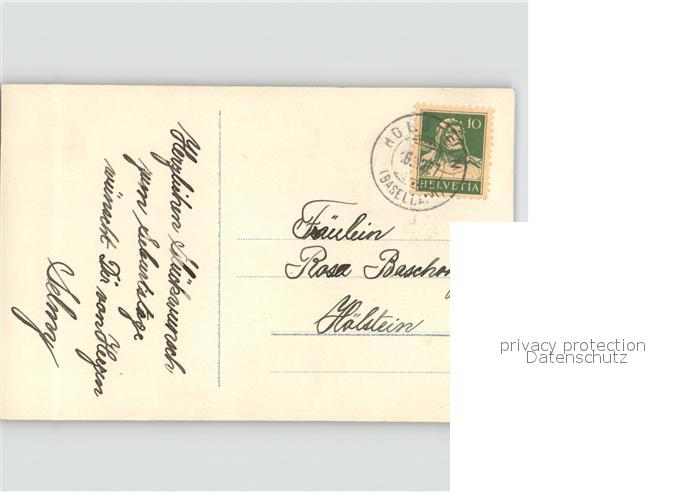 Herzlichen Glückwunsch
zum Geburtstage
wünscht Dir von Herzen
Selmy
10
HELVETIA
HÖLSTEIN
(BASELLAND)
Fräulein
Rosa
Hölstein
privacy protection
Datenschutz